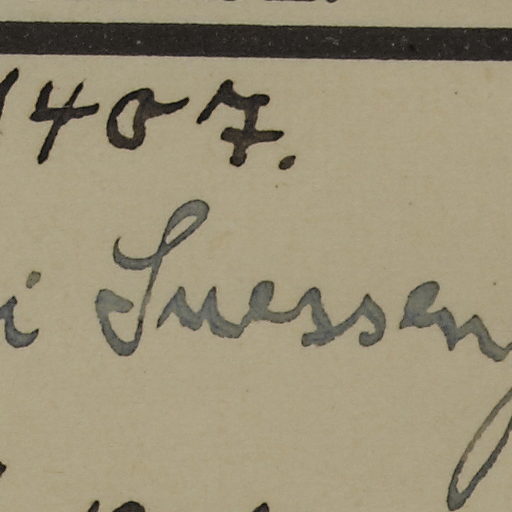 1407.
i Suesseng